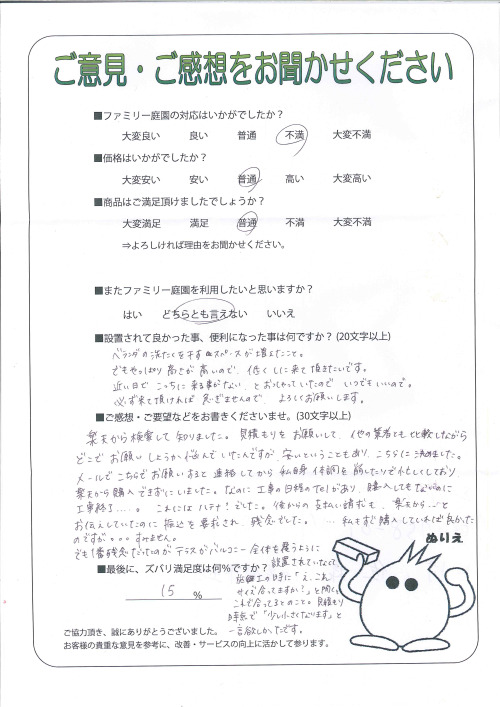 ご意見・ご感想をお聞かせください
■ファミリー庭園の対応はいかがでしたか？
大変良い 良い 普通 不満 大変不満
■価格はいかがでしたか？
大変安い 安い 普通 高い 大変高い
■商品はご満足頂けましたでしょうか？
大変満足 満足 普通 不満 大変不満
⇒よろしければ理由をお聞かせください。
■またファミリー庭園を利用したいと思いますか？
はい どちらとも言えない いいえ
■設置されて良かった事、便利になった事は何ですか？(20文字以上)
ベランダの洗たくを干すスペースが増えたこと。
でもやっぱり高さが高いので、低くしに来て頂きたいです。
近い日でこっちに来る事がない、とおっしゃっていたので いつでもいいので。
必ず来て頂ければ 急ぎませんので、よろしくお願いします。
■ご感想・ご要望などをお書きくださいませ。(30文字以上)
楽天から検索して知りました。見積もりをお願いして、他の業者とも比較しながら
どこでお願いしようか悩んでいたんですが、安いということもあり、こちらに決めました。
メールでこちらでお願いすると連絡してから私自身 体調を崩したりで忙しくしており
楽天から購入できずにいました。なのに工事の日程のTelがあり、購入してもないのに
工事終了……。これにはハテナ？でした。後からの支払い請求も、楽天から…と
お伝えしていたのに 振込を要求され、残念でした。…私もすぐ購入していれば良かった
のですが。。。すみません。
でも1番残念だったのが テラスがバルコニー全体を覆うように
設置されていなくて
施工の時に「え、これ
サイズ合ってますか？」と聞くと
これで合ってるとのこと。見積もり
時点で「少し小さくなります」と
一言欲しかったです。
ぬりえ
■最後に、ズバリ満足度は何％ですか？
15 ％
ご協力頂き、誠にありがとうございました。
お客様の貴重な意見を参考に、改善・サービスの向上に活かして参ります。